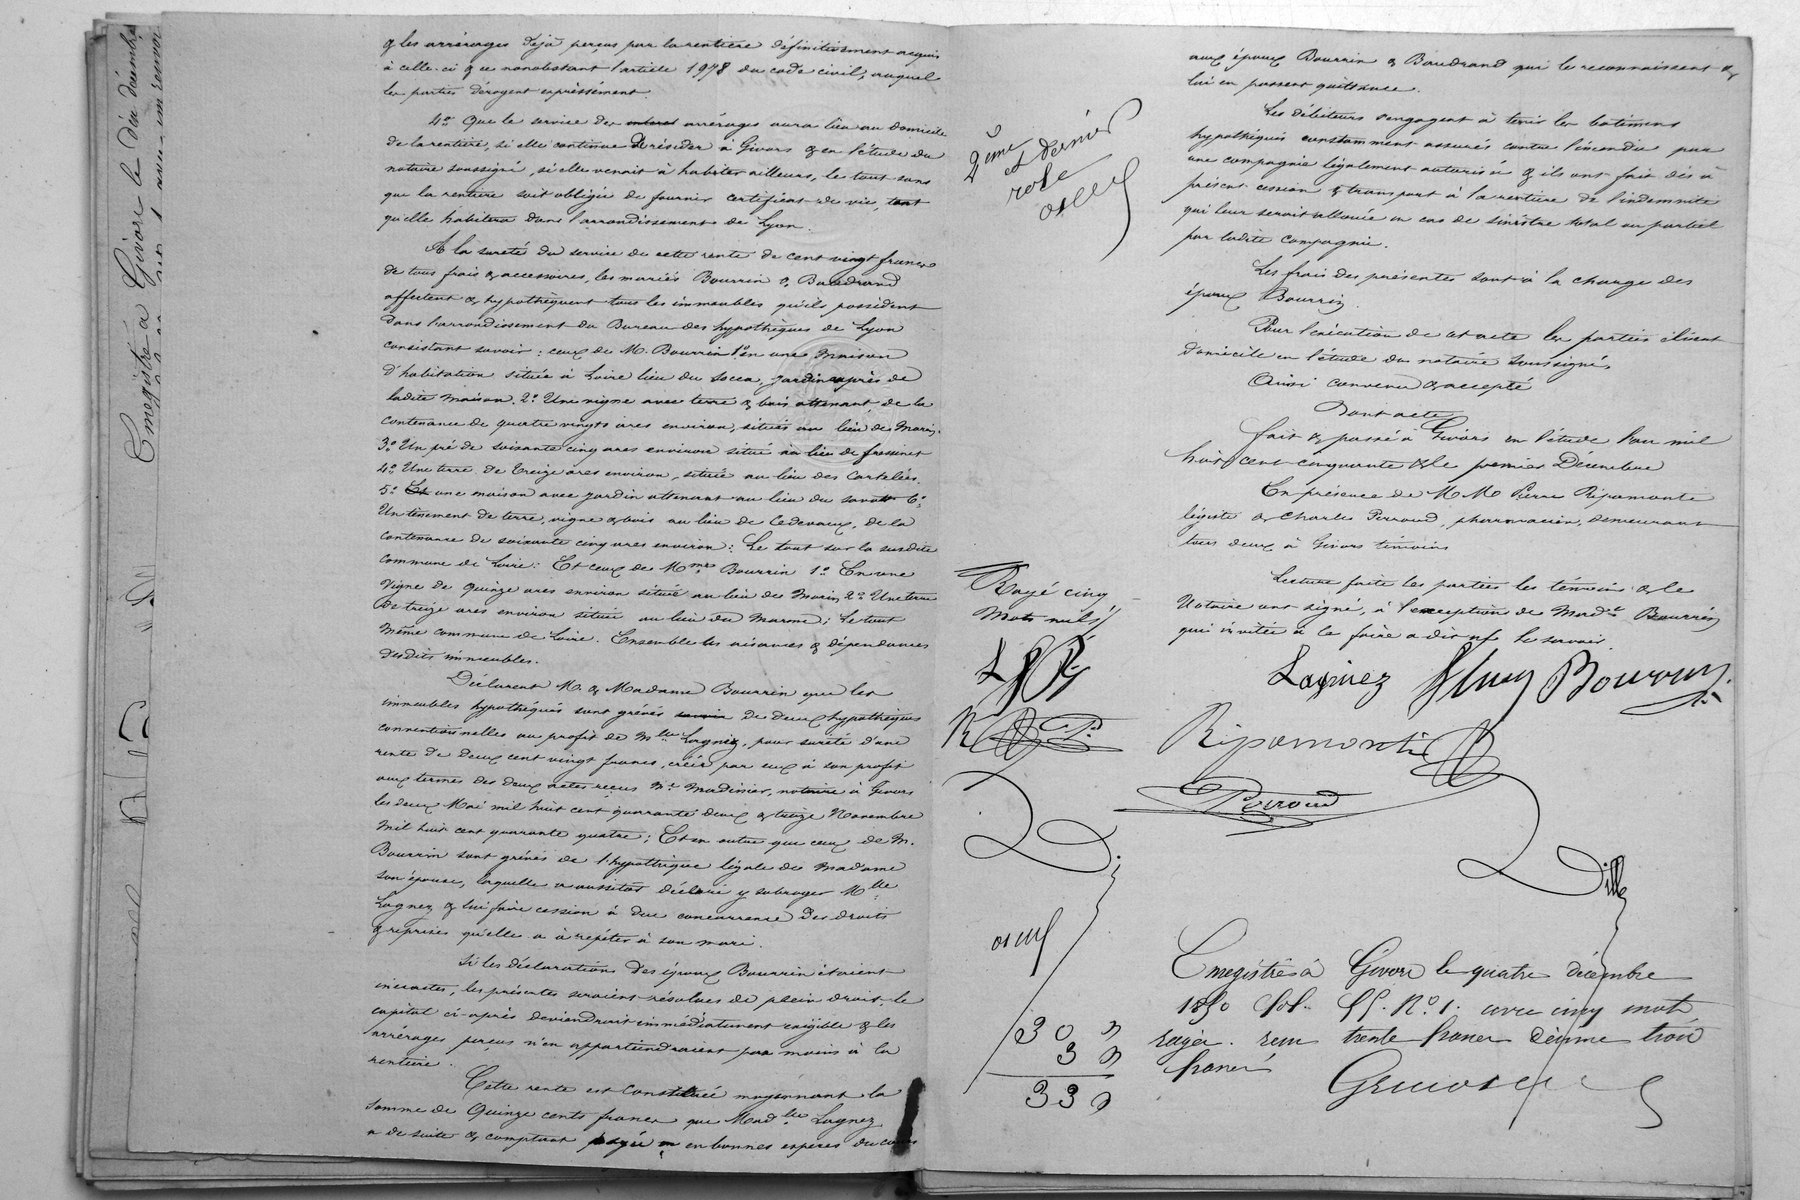 & les arrérages déjà perçus par la rentière définitivement acquis
à celle-ci & ce nonobstant l'article 1978 du code civil, auquel
les parties dérogent expressément.
4° Que le service des arrérages aura lieu au domicile
de la rentière, si elle continue de résider à Givors & en l'étude du
notaire soussigné, si elle venait à habiter ailleurs, le tout sans
que la rentière soit obligée de fournir certificat de vie, tant
qu'elle habitera dans l'arrondissement de Lyon.
A la sureté du service de cette rente de cent vingt francs
de tous frais & accessoires, les mariés Bourrin & Baudrand
affectent & hypothèquent tous les immeubles qu'ils possèdent
dans l'arrondissement du Bureau des hypothèques de Lyon
consistant savoir: ceux de M. Bourrin 1° en une maison
d'habitation située à Loire lieu du Socca, jardin auprès de
ladite maison. 2° Une vigne avec terre & bois attenant, de la
contenance de quatre vingts ares environ, situés au lieu de Morin.
3° Un pré de soixante cinq ares environ situé au lieu de frossinet
4° Une terre de treize ares environ, située au lieu des Cartelées.
5° Et une maison avec jardin attenant au lieu du 6°
Un tènement de terre, vigne & bois au lieu de Cedevaux, de la
contenance de soixante cinq ares environ: Le tout sur la susdite
commune de Loire: Et ceux de Mme Bourrin 1° En une
vigne de quinze ares environ située au lieu de Morin, 2° Une terre
de treize ares environ située au lieu du Marone; Le tout
même commune de Loire. Ensemble les aisances & dépendances
desdits immeubles.
Déclarent M. & Madame Bourrin que les
immeubles hypothéqués sont grévés de deux hypothèques
conventionnelles au profit de Mlle Lagnez, pour sureté d'une
rente de deux cent vingt francs, créée par eux à son profit
aux termes des deux actes reçus Me Madinier, notaire à Givors
les deux Mai mil huit cent quarante deux & treize Novembre
mil huit cent quarante quatre; Et en outre que ceux de M.
Bourrin sont grévés de l'hypothèque légale de Madame
son épouse, laquelle a aussitôt déclaré y subroger Mlle
Lagnez & lui faire cession à due concurrence des droits
& reprises qu'elle a à répéter à son mari.
Si les déclarations des époux Bourrin étaient
inexactes, les présentes seraient résolues de plein droit le
capital ci-après deviendrait immédiatement exigible & les
arrérages perçus n'en appartiendraient pas moins à la
rentière.
Cette rente est constituée moyennant la
somme de Quinze cents francs que Madlle Lagnez
a de suite & comptant payée en bonnes espèces du cours
aux époux Bourrin & Baudrand qui le reconnaissent &
lui en passent quittance.
Les débiteurs s'engagent à tenir les batimens
hypothéqués constamment assurés contre l'incendie par
une compagnie légalement autorisée & ils ont fait dès à
présent cession & transport à la rentière de l'indemnité
qui leur serait allouée en cas de sinistre total ou partiel
par ladite compagnie.
Les frais des présentes sont à la charge des
époux Bourrin.
Pour l'exécution de cet acte les parties élisent
domicile en l'étude du notaire soussigné,
Ainsi convenu & accepté
Dont acte
fait & passé à Givors en l'étude l'an mil
huit cent cinquante & le premier Décembre
En présence de MM Pierre Ripamonte
légiste & Charles Perroud, pharmacien, demeurant
tous deux à Givors témoins
Lecture faite les parties les témoins & le
Notaire ont signé, à l'exception de Made Bourrin
qui invitée à le faire a dit ne le savoir.
Lagniez Bourrin
Ripamonti
Perroud
Dille
2ème
et dernier
role
Rayé cinq
Mots nuls
Enregistré à Givors le quatre décembre
1850 fol. 55. N° 1. avec cinq mots
rayés. reçu trente francs décime trois
francs
30 "
3 "
33 "
Enregistré à Givors le dix décembre